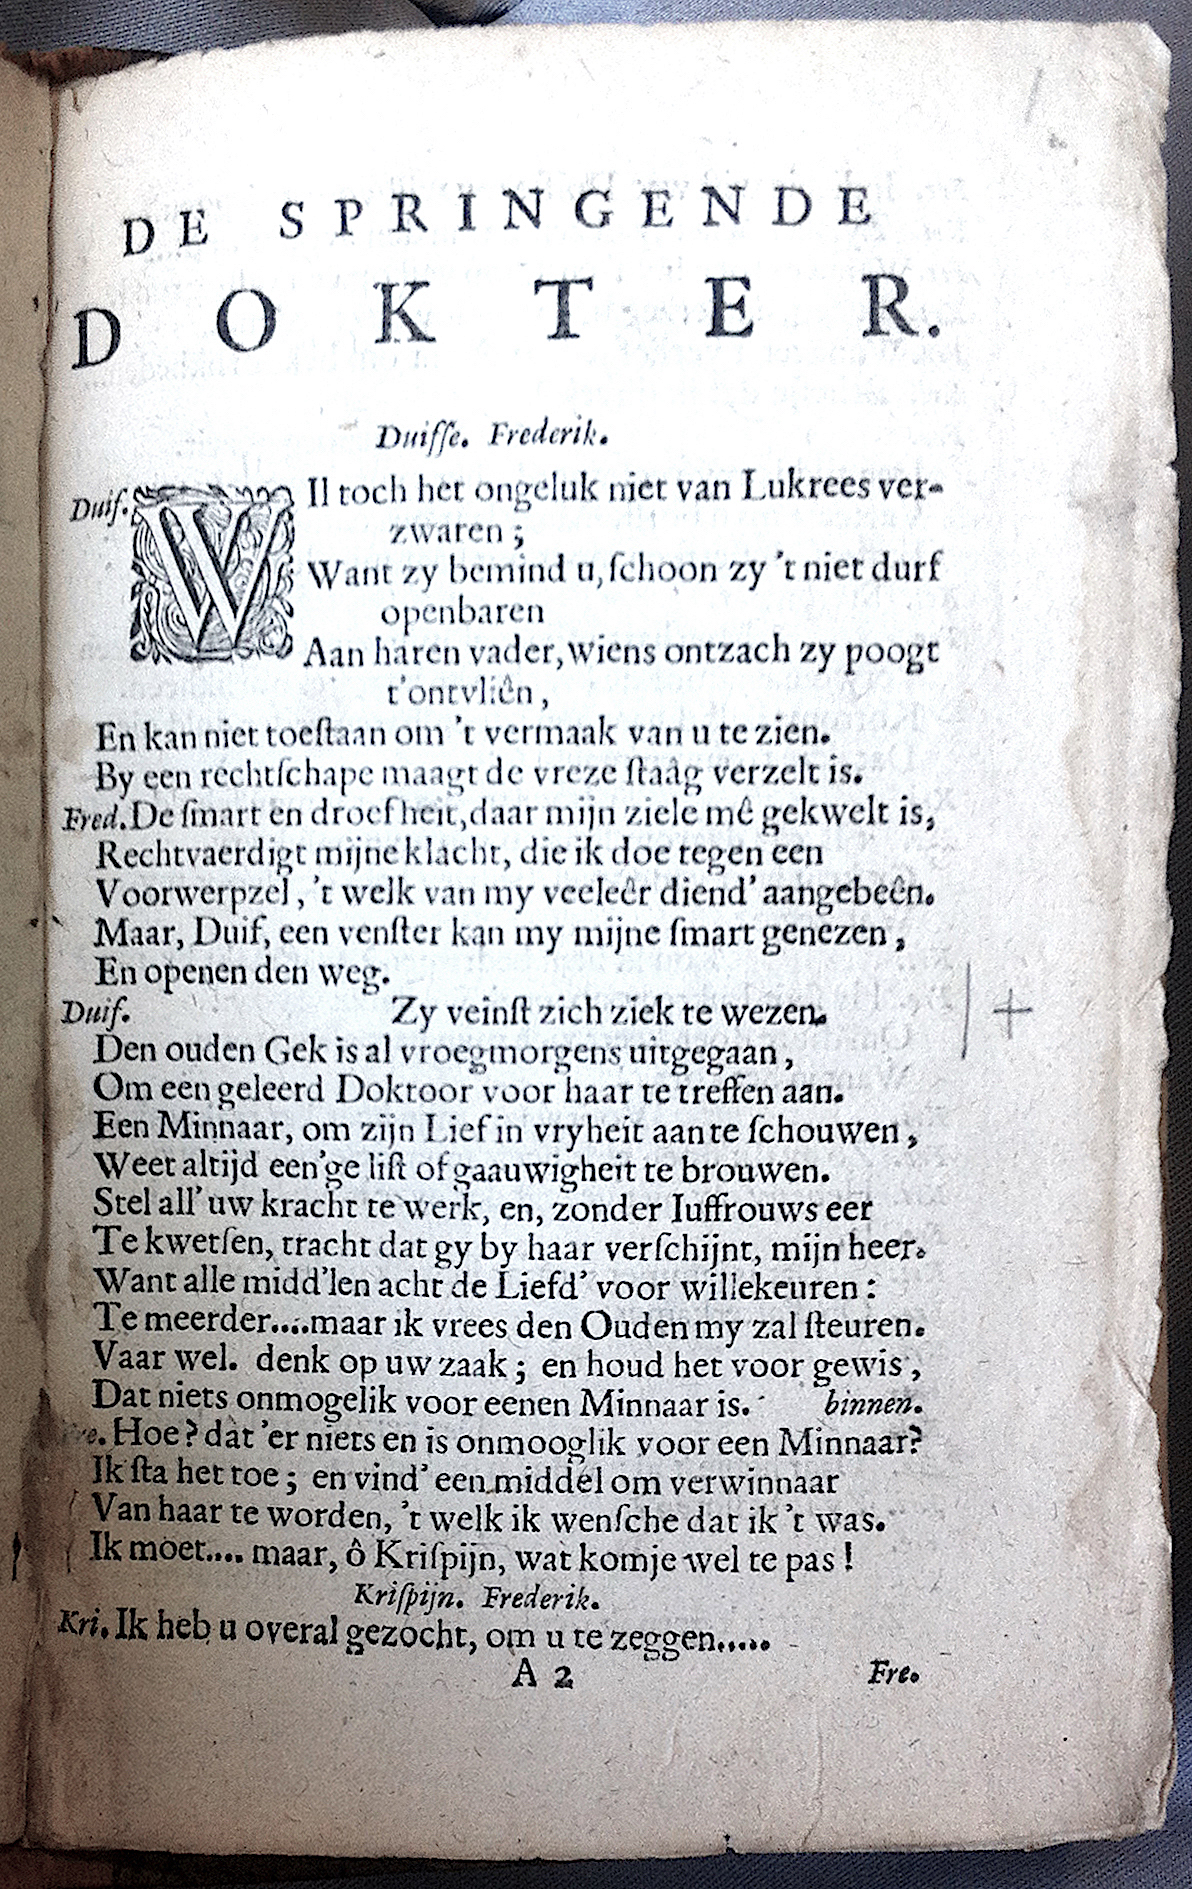 DE SPRINGENDE
DOKTER.
Duiſſe. Frederik.
Duiſ. WIl toch het ongeluk niet van Lukrees ver-
zwaren ;
Want zy bemind u, ſchoon zy 't niet durf
openbaren
Aan haren vader, wiens ontzach zy poogt
t'ontvliên ,
En kan niet toeſtaan om 't vermaak van u te zien.
By een rechtſchape maagt de vreze ſtaâg verzelt is.
Fred. De ſmart en droefheit, daar mijn ziele mê gekwelt is,
Rechtvaerdigt mijne klacht, die ik doe tegen een
Voorwerpzel, 't welk van my veeleêr diend' aangebeên.
Maar, Duif, een venſter kan my mijne ſmart genezen ,
En openen den weg.
Duiſ. Zy veinſt zich ziek te wezen.
Den ouden Gek is al vroegmorgens uitgegaan ,
Om een geleerd Doktoor voor haar te treffen aan.
Een Minnaar, om zijn Lief in vryheit aan te ſchouwen ,
Weet altijd een'ge liſt of gaauwigheit te brouwen.
Stel all' uw kracht te werk, en, zonder Iuffrouws eer
Te kwetſen, tracht dat gy by haar verſchijnt, mijn heer.
Want alle midd'len acht de Liefd' voor willekeuren :
Te meerder....maar ik vrees den Ouden my zal ſteuren.
Vaar wel. denk op uw zaak ; en houd het voor gewis ,
Dat niets onmogelik voor eenen Minnaar is. binnen.
Fre. Hoe? dat 'er niets en is onmooglik voor een Minnaar?
Ik ſta het toe ; en vind' een middel om verwinnaar
Van haar te worden, 't welk ik wenſche dat ik 't was.
Ik moet.... maar, ô Kriſpijn, wat komje wel te pas !
Kriſpijn. Frederik.
Kri. Ik heb u overal gezocht, om u te zeggen.....
A 2 Fre.